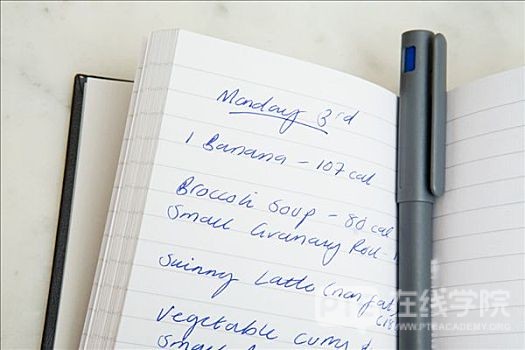 Monday 3rd
1 Banana - 107 cal
Broccoli Soup - 80 cal
Small Granary Roll -
Skinny Latte (non fat)
Vegetable Curry
Small
在线学院
WWW.PTBACADEMY.ORG